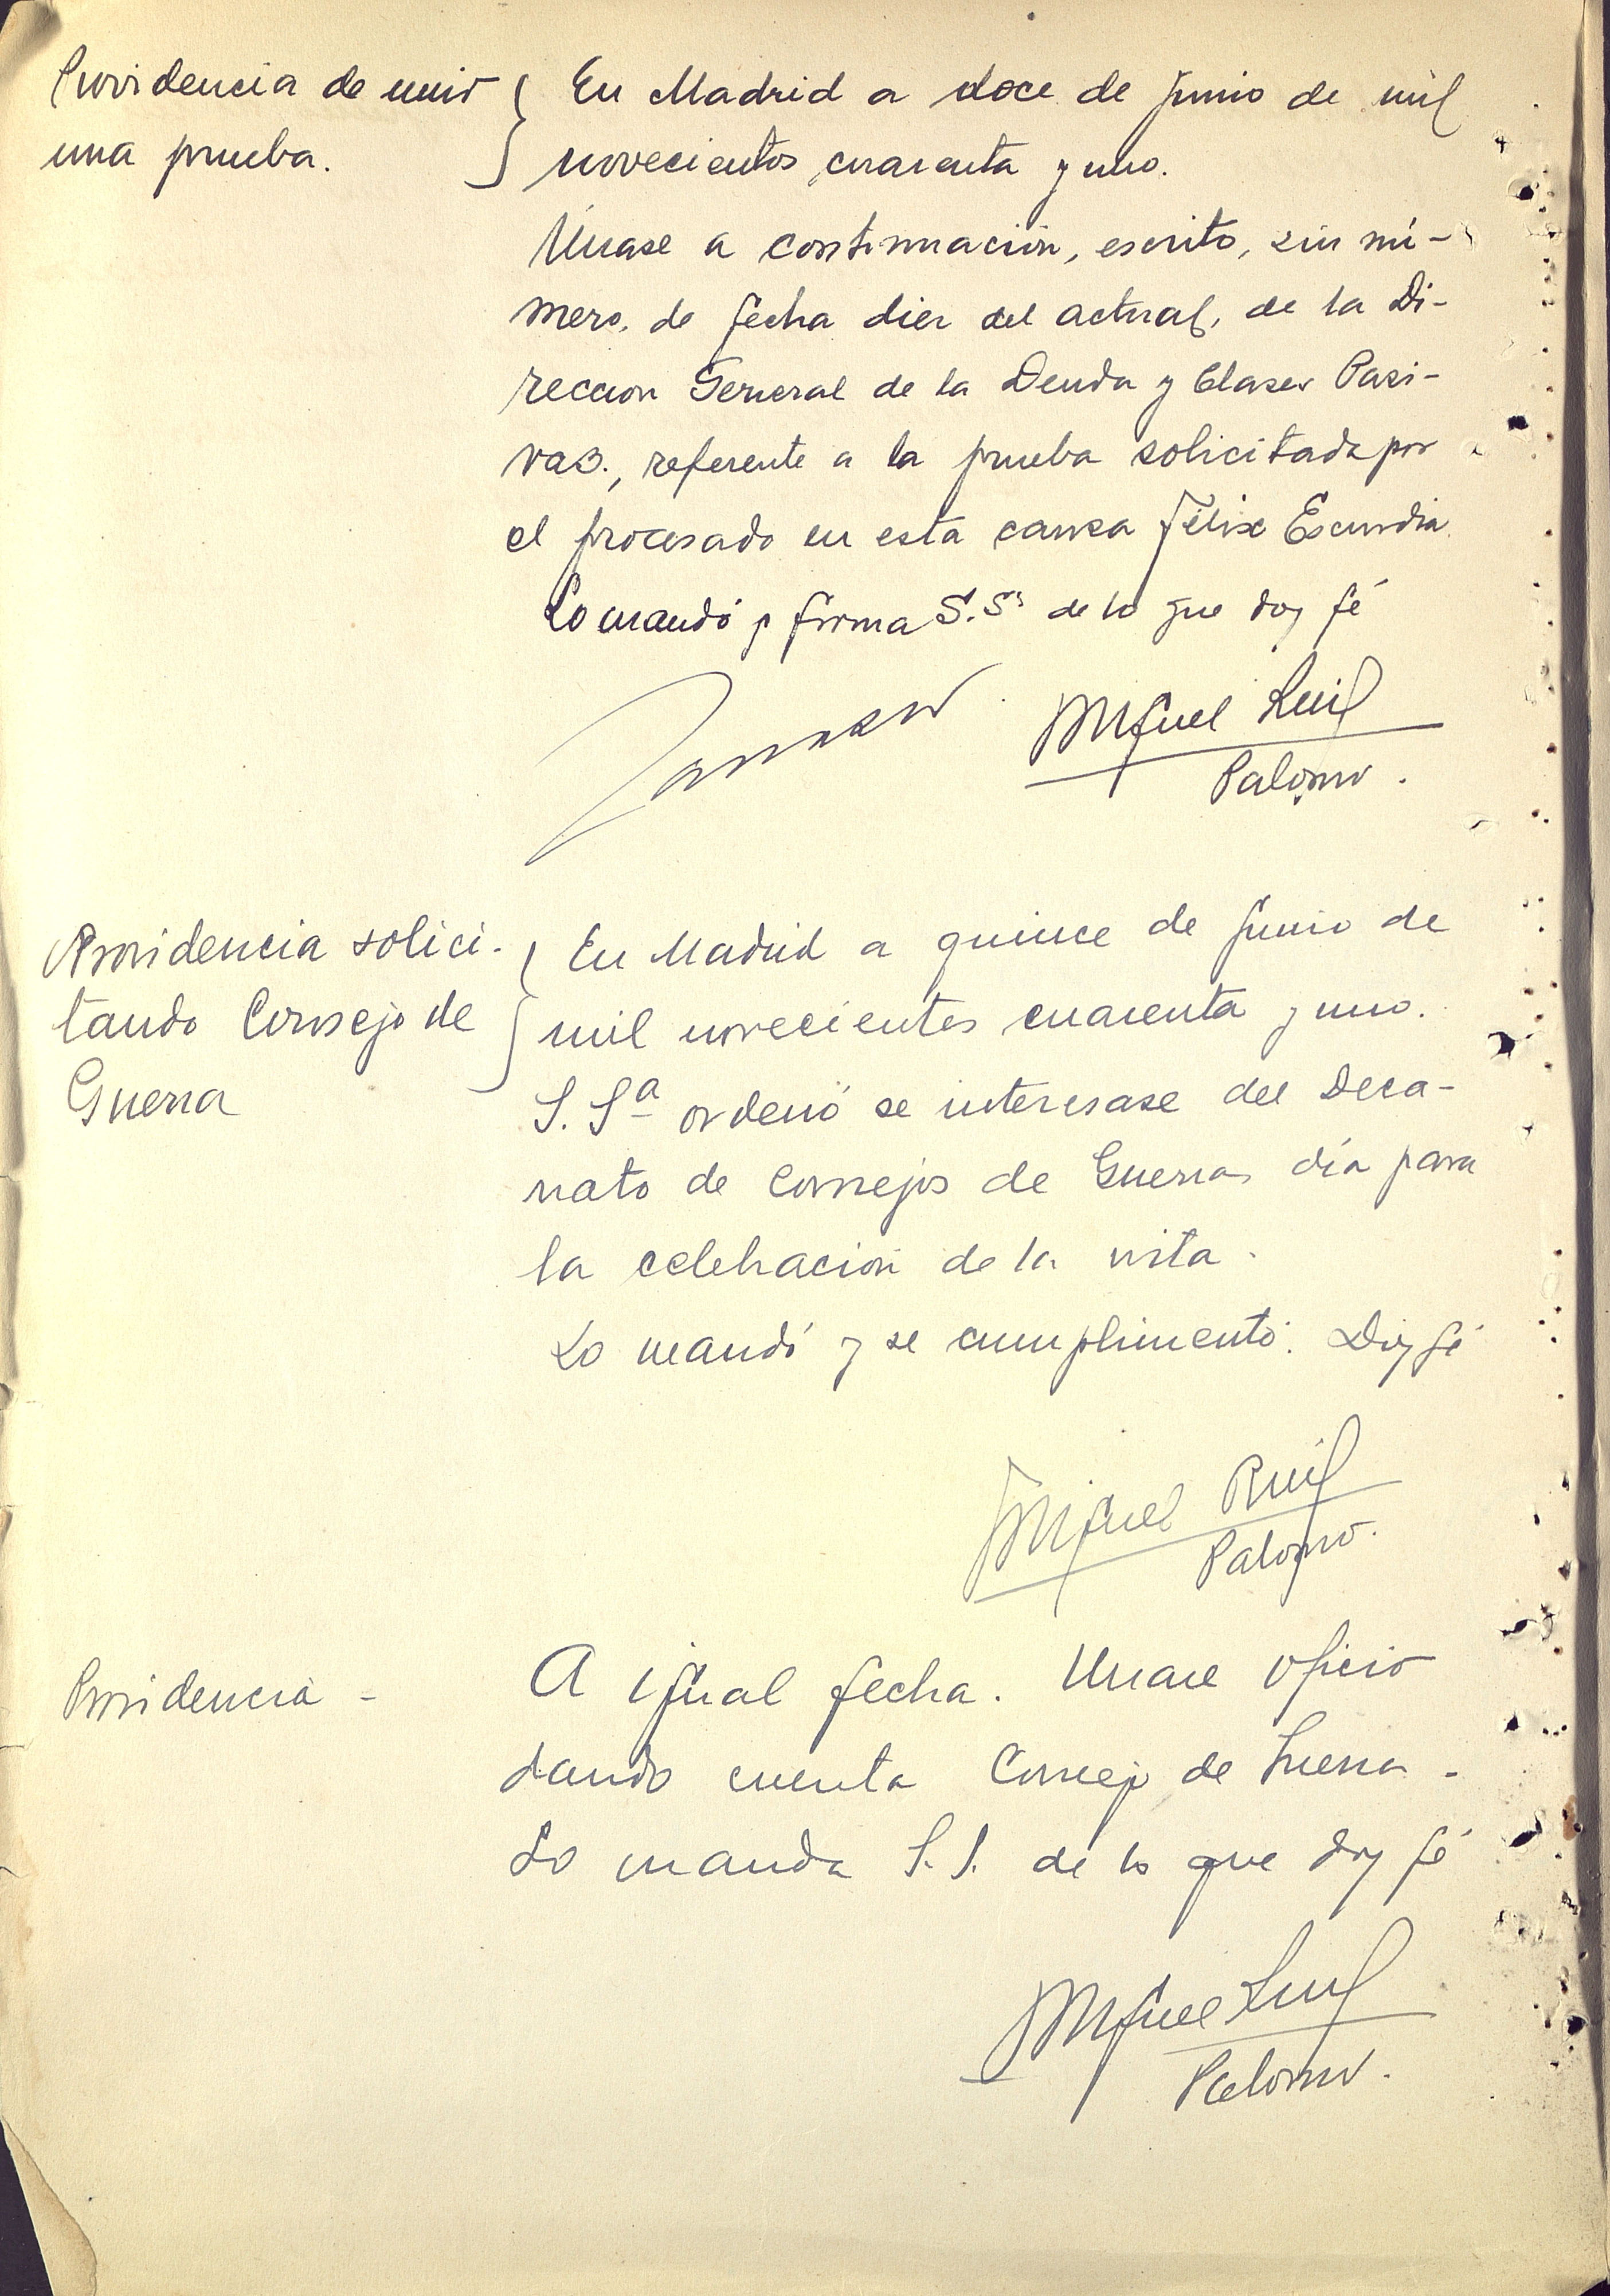 Providencia de unir
una prueba.
En Madrid a doce de Junio de mil
novecientos cuarenta y uno.
Únase a continuación, escrito, sin nú-
mero, de fecha diez del actual, de la Di-
reccion General de la Deuda y Clases Pasi-
vas., referente a la prueba solicitada por
el procesado en esta causa Félix Escurdia.
Lo mandó y firma S.Sª de lo que doy fé
Miguel Ruiz
Palomo.
Providencia solici-
tando Consejo de
Guerra
En Madrid a quince de Junio de
mil novecientos cuarenta y uno.
S. Sª ordenó se interesase del Deca-
nato de Consejos de Guerra, día para
la celebración de la vista.
Lo mandó y se cumplimentó. Doy fé
Miguel Ruiz
Palomo.
Providencia -
A igual fecha. Unase oficio
dando cuenta Consejo de Guerra -
Lo manda S. S. de lo que doy fé
Miguel Ruiz
Palomo.